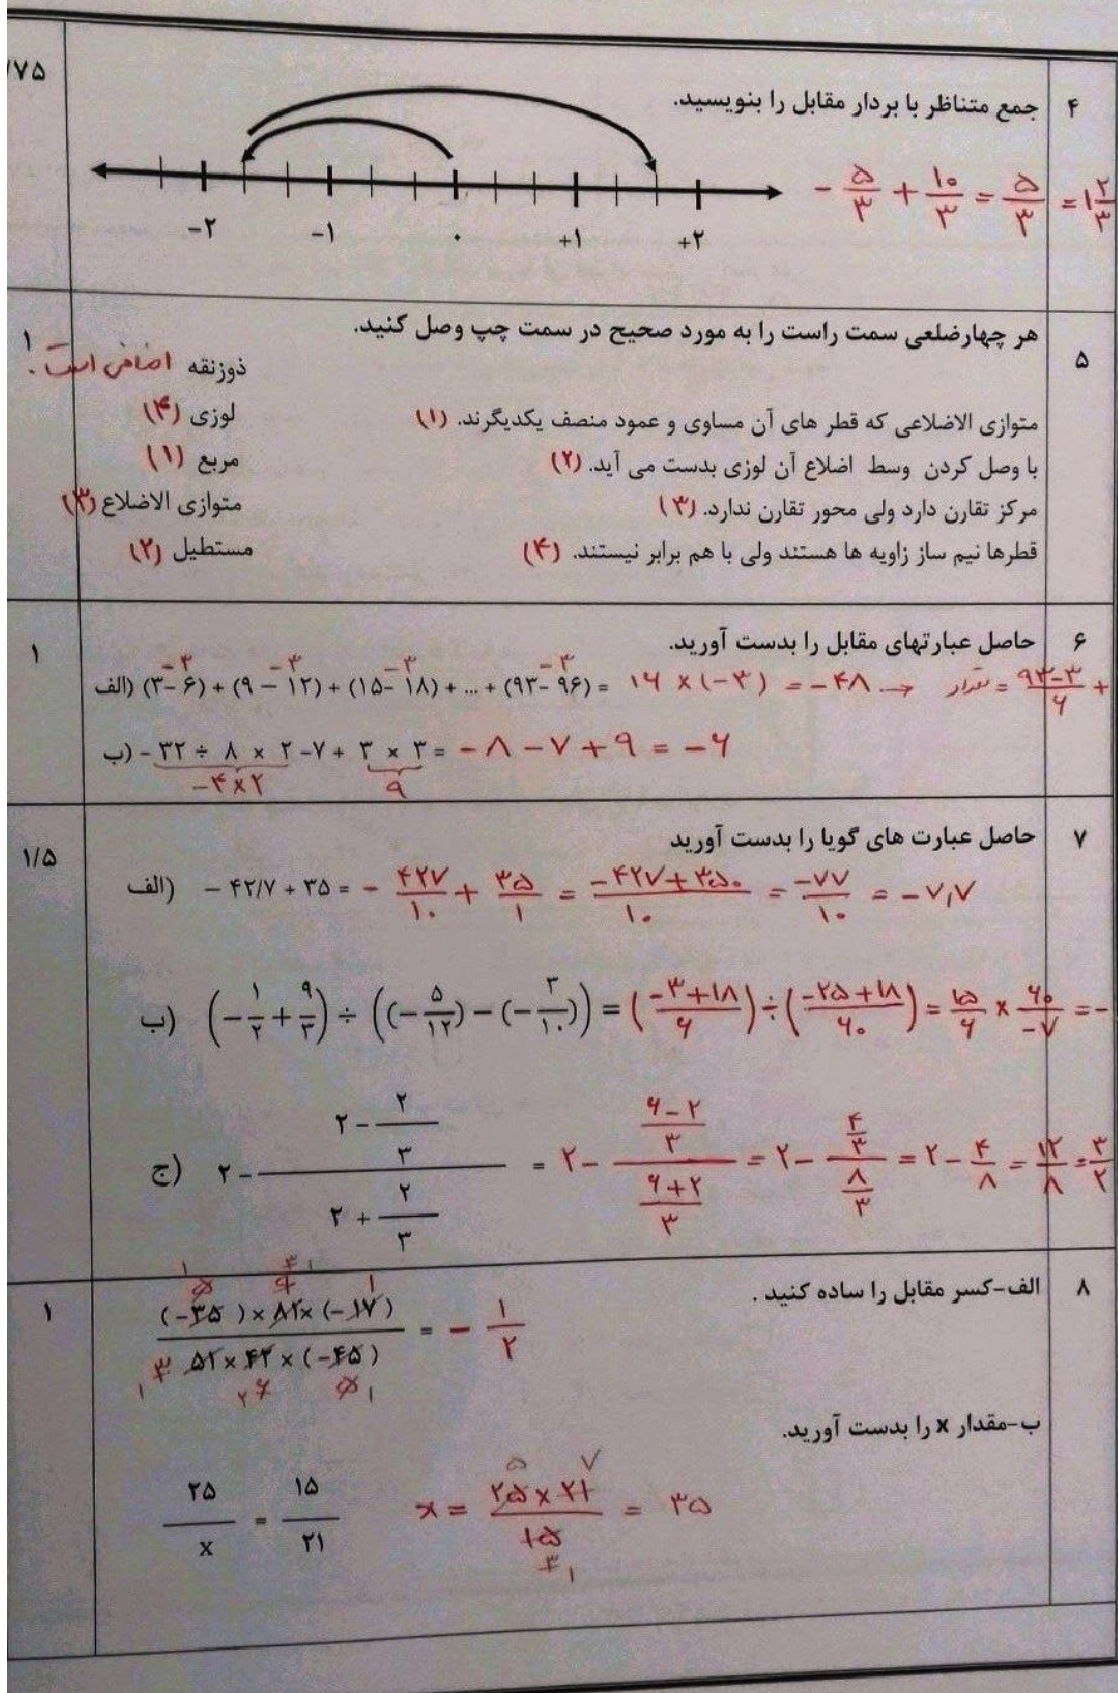 /۷۵
۴ جمع متناظر با بردار مقابل را بنویسید.
- ۵/۳ + ۱۰/۳ = ۵/۳ = ۱ ۲/۳
-۲ -۱ ۰ +۱ +۲
۱
۵ هر چهارضلعی سمت راست را به مورد صحیح در سمت چپ وصل کنید.
ذوزنقه اضافی است.
متوازی الاضلاعی که قطر های آن مساوی و عمود منصف یکدیگرند. (۱) لوزی (۴)
با وصل کردن وسط اضلاع آن لوزی بدست می آید. (۲) مربع (۱)
مرکز تقارن دارد ولی محور تقارن ندارد. (۳) متوازی الاضلاع (۳)
قطرها نیم ساز زاویه ها هستند ولی با هم برابر نیستند. (۴) مستطیل (۲)
۱
۶ حاصل عبارتهای مقابل را بدست آورید.
-۳ -۳ -۳ -۳
الف) (۳-۶) + (۹-۱۲) + (۱۵-۱۸) + ... + (۹۳-۹۶) = ۱۶ × (-۳) = -۴۸ → تعداد = (۹۳-۳)/۶ +
ب) -۳۲ ÷ ۸ × ۲ -۷ + ۳ × ۳ = -۸ -۷ +۹ = -۶
-۴×۲ ۹
۱/۵
۷ حاصل عبارت های گویا را بدست آورید
الف) -۴۲/۷ + ۳۵ = - ۴۲۷/۱۰ + ۳۵/۱ = (-۴۲۷+۳۵۰)/۱۰ = -۷۷/۱۰ = -۷,۷
ب) (-۱/۲ + ۹/۳) ÷ ((-۵/۱۲) - (-۳/۱۰)) = ((-۳+۱۸)/۶) ÷ ((-۲۵+۱۸)/۶۰) = ۱۵/۶ × ۶۰/-۷ = -
ج) ۲ - (۲ - ۲/۳)/(۲ + ۲/۳) = ۲ - ((۶-۲)/۳)/((۶+۲)/۳) = ۲ - (۴/۳)/(۸/۳) = ۲ - ۴/۸ = ۱۲/۸ = ۳/۲
۱
۸ الف-کسر مقابل را ساده کنید .
((-۳۵) × ۸۲ × (-۱۷))/(۵۱ × ۴۲ × (-۴۵)) = - ۱/۲
ب-مقدار x را بدست آورید.
۲۵/x = ۱۵/۲۱ x = (۲۵ × ۲۱)/۱۵ = ۳۵